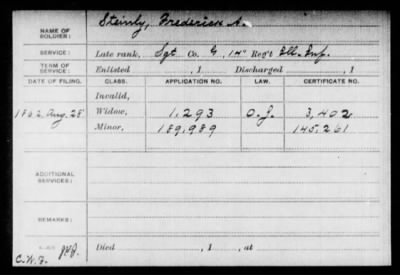 NAME OF SOLDIER: Steinly, Frederick A.
SERVICE: Late rank, Sgt Co. G, 14" Reg't Ill. Inf.
TERM OF SERVICE: Enlisted , 1 Discharged , 1
DATE OF FILING. CLASS. APPLICATION NO. LAW. CERTIFICATE NO.
Invalid,
1862 Aug. 28 Widow, 1,293 O.L. 3,402
Minor, 189,989 145,261
ADDITIONAL SERVICES:
REMARKS:
Died , 1 , at
C.W.F.